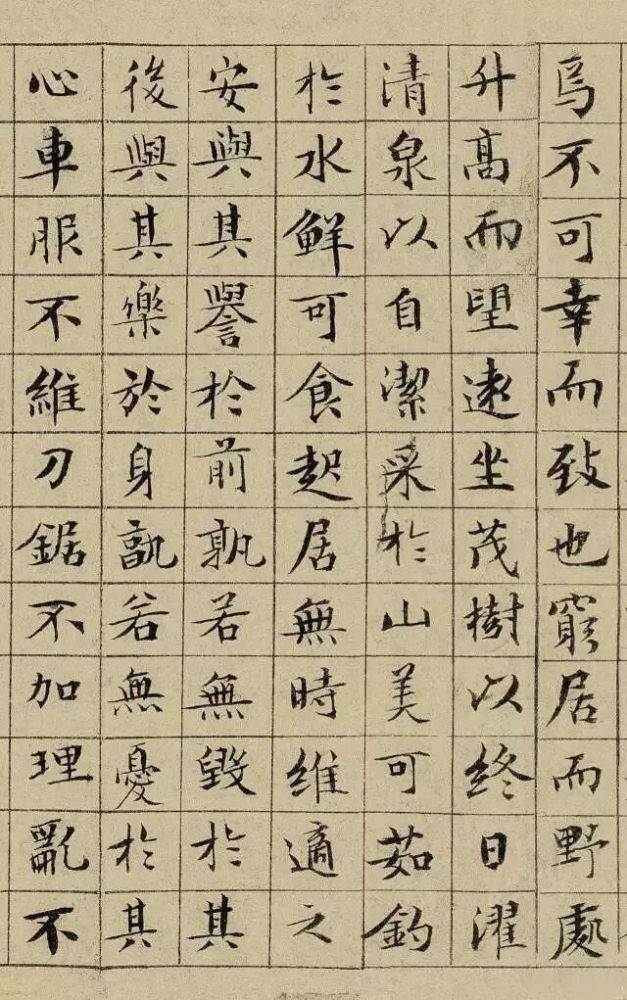 焉不可幸而致也窮居而野處
升高而望遠坐茂樹以終日濯
清泉以自潔采於山美可茹釣
於水鮮可食起居無時維適之
安與其譽於前孰若無毀於其
後與其樂於身孰若無憂於其
心車服不維刀鋸不加理亂不